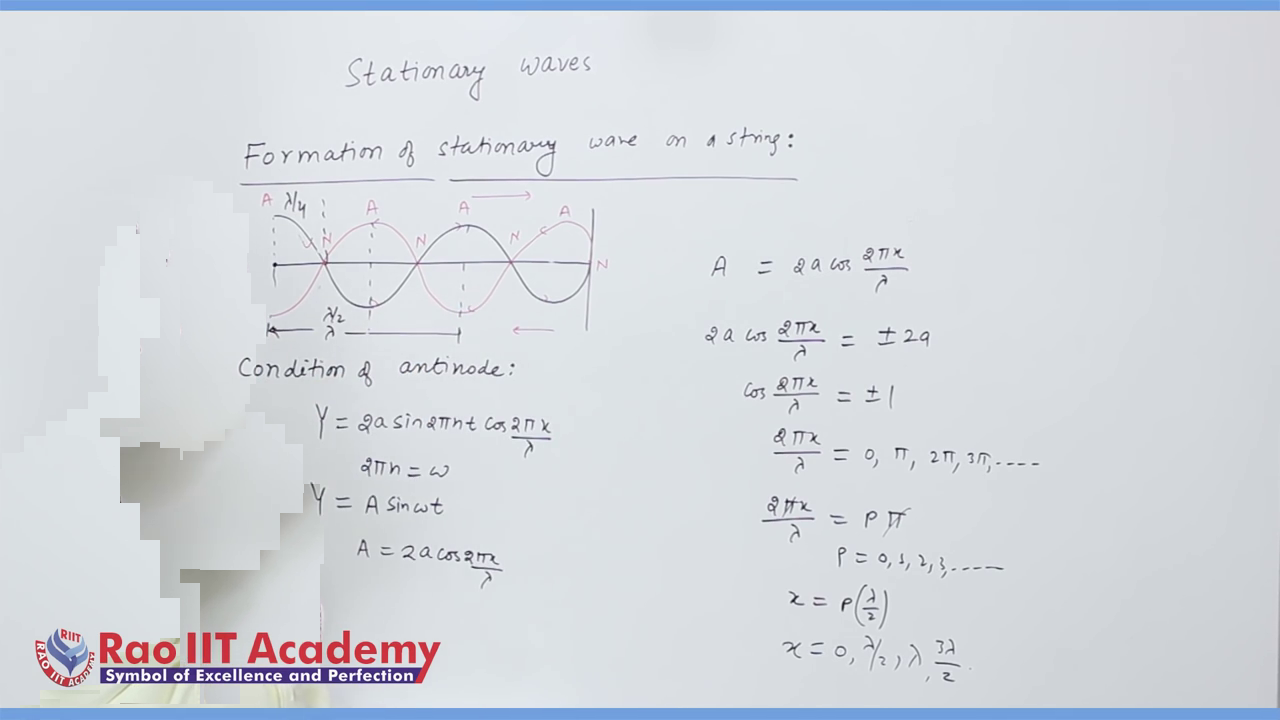 Stationary waves
Formation of stationary wave on a string:
A λ/4 A A A
N N N N
λ/2
λ
Condition of antinode:
Y = 2a sin 2πnt cos 2πx/λ
2πn = ω
Y = A sin ωt
A = 2a cos 2πx/λ
A = 2a cos 2πx/λ
2a cos 2πx/λ = ± 2a
cos 2πx/λ = ± 1
2πx/λ = 0, π, 2π, 3π,----
2πx/λ = P π
P = 0, 1, 2, 3,-----
x = P(λ/2)
x = 0, λ/2, λ, 3λ/2
RIIT
RAO IIT ACADEMY
Rao IIT Academy
Symbol of Excellence and Perfection